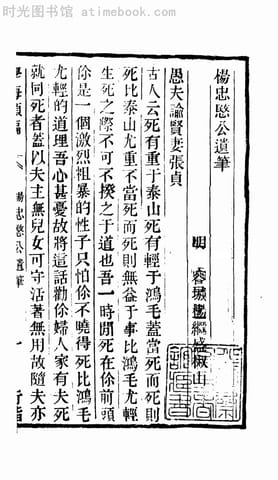 时光图书馆 www.atimebook.com
楊忠愍公遺筆
明 容城楊繼盛椒山
愚夫諭賢妻張貞
古人云死有重于泰山死有輕于鴻毛蓋當死而死則
死比泰山尤重不當死而死則無益于事比鴻毛尤輕
生死之際不可不揆之于道也吾一時間死在你前頭
你是一個激烈粗暴的性子只怕你不曉得死比鴻毛
尤輕的道理吾心甚憂故將這話勸你婦人家有夫死
就同死者蓋以夫主無兒女可守活著無用故隨夫亦
學海類編
楊忠愍公遺筆
一
行詣